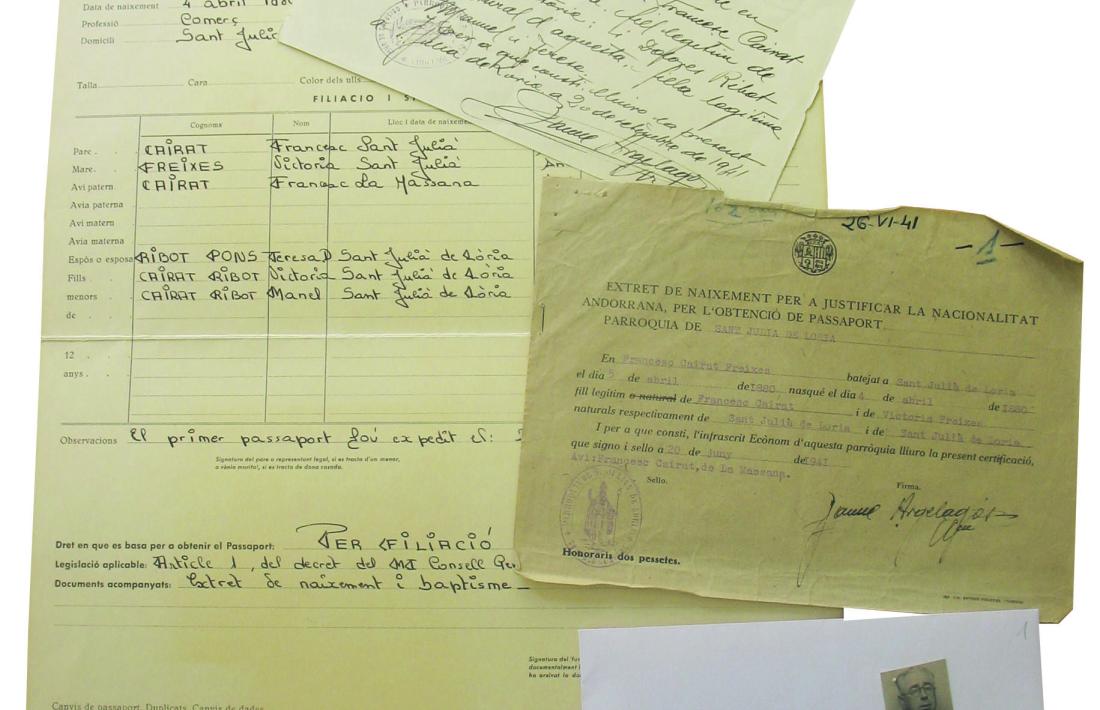 Data de naixement 4 abril
Professió Comerç
Domicili Sant Julià
Talla Cara Color dels ulls
FILIACIO I
Cognoms Nom Lloc i data de naixeme
Pare CAIRAT Francesc Sant Julià
Mare. FREIXES Victoria Sant Julià
Avi patern CAIRAT Francesc La Massana
Avia paterna
Avi matern
Avia materna
Espòs o esposa RIBOT PONS Teresa D Sant Julià de Lòria
Fills CAIRAT RIBOT Victoria Sant Julià de Lòria
menors CAIRAT RIBOT Manel Sant Julià de Lòria
de
12
anys.
Observacions El primer passaport fou expedit el:
Signatura del pare o representant legal, si es tracta d'un menor,
o vènia marital, si es tracta de dona casada.
Dret en que es basa per a obtenir el Passaport: PER FILIACIÓ
Legislació aplicable: Article 1, del decret del MI Consell Gen
Documents acompanyats: Extret de naixement i baptisme
Signatura del
documentalment
ha arxivat la do
Canvis de passaport, Duplicats, Canvis de dades
Francesc Cairat
fill legítim de
i Dolores Ribot
natural d'aquesta, filla legítima
Manuel i Teresa.
I per a que consti, lliuro la present
Julià de Loria a 20 de setembre de 1941
Jaume Argelagós
26-VI-41
-1-
EXTRET DE NAIXEMENT PER A JUSTIFICAR LA NACIONALITAT
ANDORRANA, PER L'OBTENCIÓ DE PASSAPORT
PARROQUIA DE SANT JULIA DE LORIA
En Francesc Cairat Freixes batejat a Sant Julià de Loria
el dia 5 de abril de 1880 nasqué el dia 4 de abril de 1880
fill legítim o natural de Francesc Cairat i de Victoria Freixes
naturals respectivament de Sant Julià de Loria i de Sant Julià de Loria
I per a que consti, l'infrascrit Ecònom d'aquesta parròquia lliuro la present certificació,
que signo i sello a 20 de juny de 1941
Avi: Francesc Cairat, de La Massana.
Sello. Firma.
Jaume Argelagós
Honoraris dos pessetes.
1